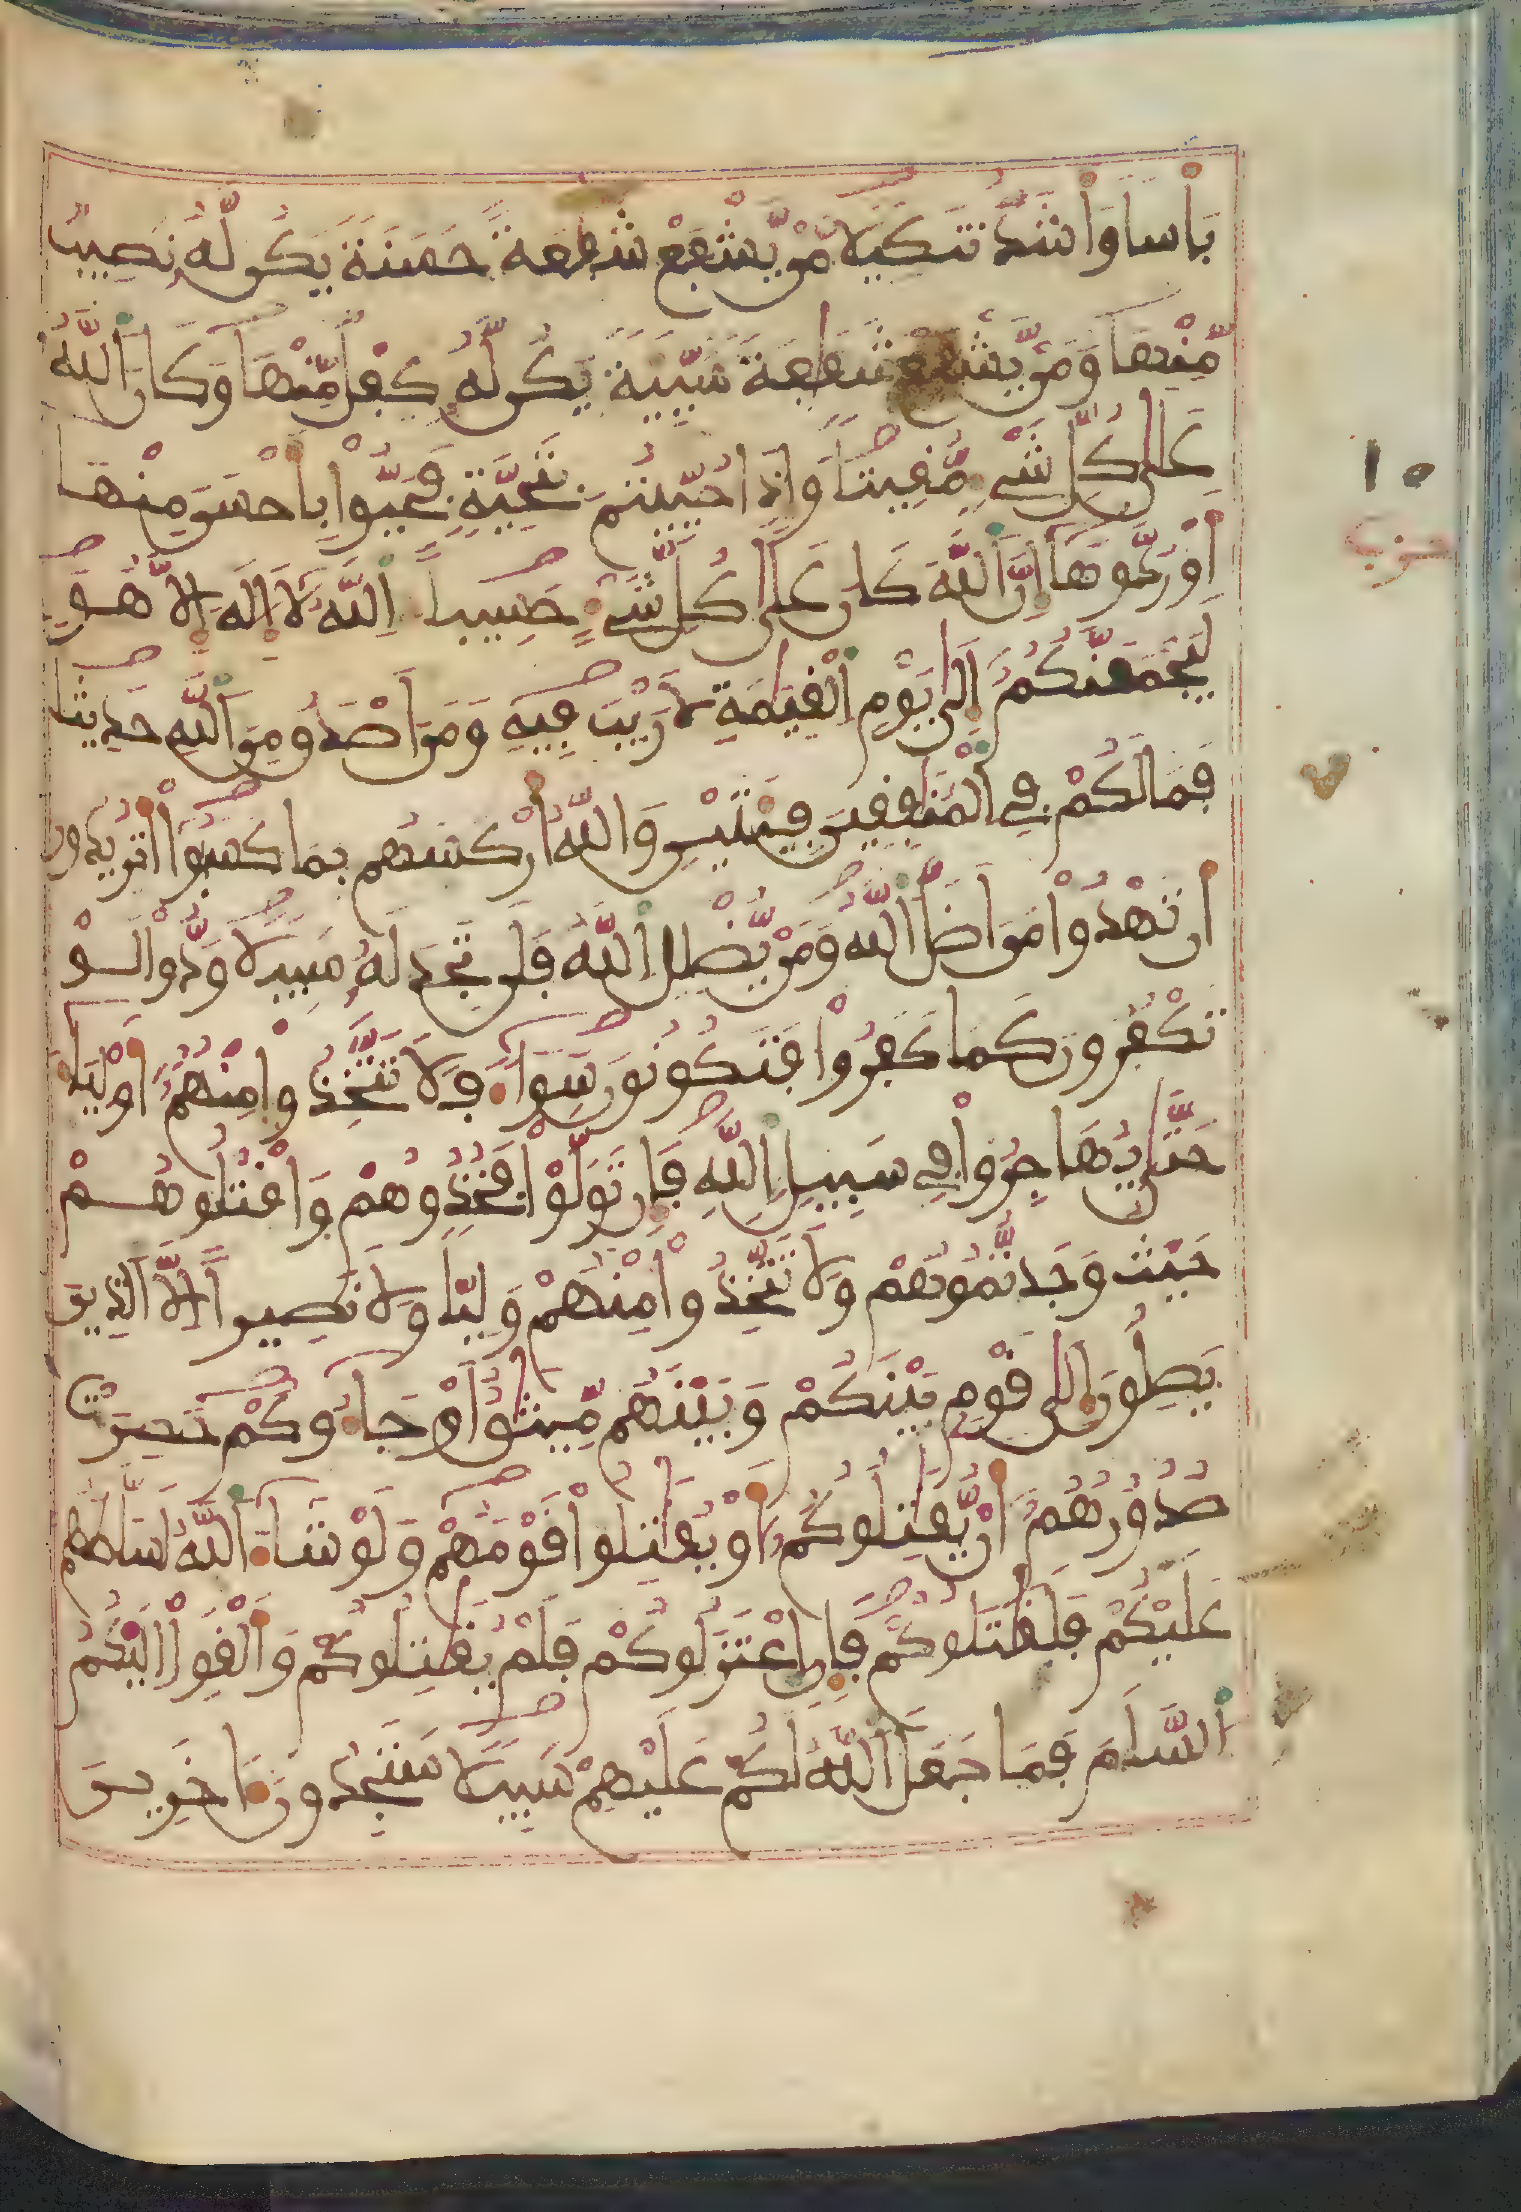 بَأْسا وَأَشَدُّ تَنكِيلا مَّنْ يَّشْفَعْ شَفَٰعَةً حَسَنَةً يَكُن لَّهُۥ نَصِيبٌ
مِّنْهَا وَمَنْ يَّشْفَعْ شَفَٰعَةً سَيِّئَةً يَكُن لَّهُۥ كِفْلٌ مِّنْهَا وَكَانَ اَللَّهُ
عَلَىٰ كُلِّ شَےْءٍ مُّقِيتاً وَإِذَا حُيِّيتُم بِتَحِيَّةٍ فَحَيُّواْ بِأَحْسَنَ مِنْهَا
أَوْ رُدُّوهَا إِنَّ اَللَّهَ كَانَ عَلَىٰ كُلِّ شَےْءٍ حَسِيباً اِللَّهُ لَا إِلَٰهَ إِلَّا هُوَ
لَيَجْمَعَنَّكُمُ إِلَىٰ يَوْمِ اِلْقِيَٰمَةِ لَا رَيْبَ فِيهِ وَمَنَ اَصْدَقُ مِنَ اَللَّهِ حَدِيثا
فَمَا لَكُمْ فِے اِلْمُنَٰفِقِينَ فِئَتَيْنِ وَاللَّهُ أَرْكَسَهُم بِمَا كَسَبُواْ أَتُرِيدُونَ
أَن تَهْدُواْ مَنَ اَضَلَّ اَللَّهُ وَمَنْ يُّضْلِلِ اِللَّهُ فَلَن تَجِدَ لَهُۥ سَبِيلاً وَدُّواْ لَوْ
تَكْفُرُونَ كَمَا كَفَرُواْ فَتَكُونُونَ سَوَآءً فَلَا تَتَّخِذُواْ مِنْهُمُ أَوْلِيَآءَ
حَتَّىٰ يُهَاجِرُواْ فِے سَبِيلِ اِللَّهِ فَإِن تَوَلَّوْاْ فَخُذُوهُمْ وَاقْتُلُوهُمْ
حَيْثُ وَجَدتُّمُوهُمْ وَلَا تَتَّخِذُواْ مِنْهُمْ وَلِيّاً وَلَا نَصِيراً إِلَّا اَلذِينَ
يَصِلُونَ إِلَىٰ قَوْمِۭ بَيْنَكُمْ وَبَيْنَهُم مِّيثَٰقٌ أَوْ جَآءُوكُمْ حَصِرَتْ
صُدُورُهُمُ أَنْ يُّقَٰتِلُوكُمُ أَوْ يُقَٰتِلُواْ قَوْمَهُمْ وَلَوْ شَآءَ اَللَّهُ لَسَلَّطَهُمْ
عَلَيْكُمْ فَلَقَٰتَلُوكُمْ فَإِنِ اِعْتَزَلُوكُمْ فَلَمْ يُقَٰتِلُوكُمْ وَأَلْقَوِاْ اِلَيْكُمُ
اُلسَّلَمَ فَمَا جَعَلَ اَللَّهُ لَكُمْ عَلَيْهِمْ سَبِيلاً سَتَجِدُونَ ءَاخَرِينَ
حزب